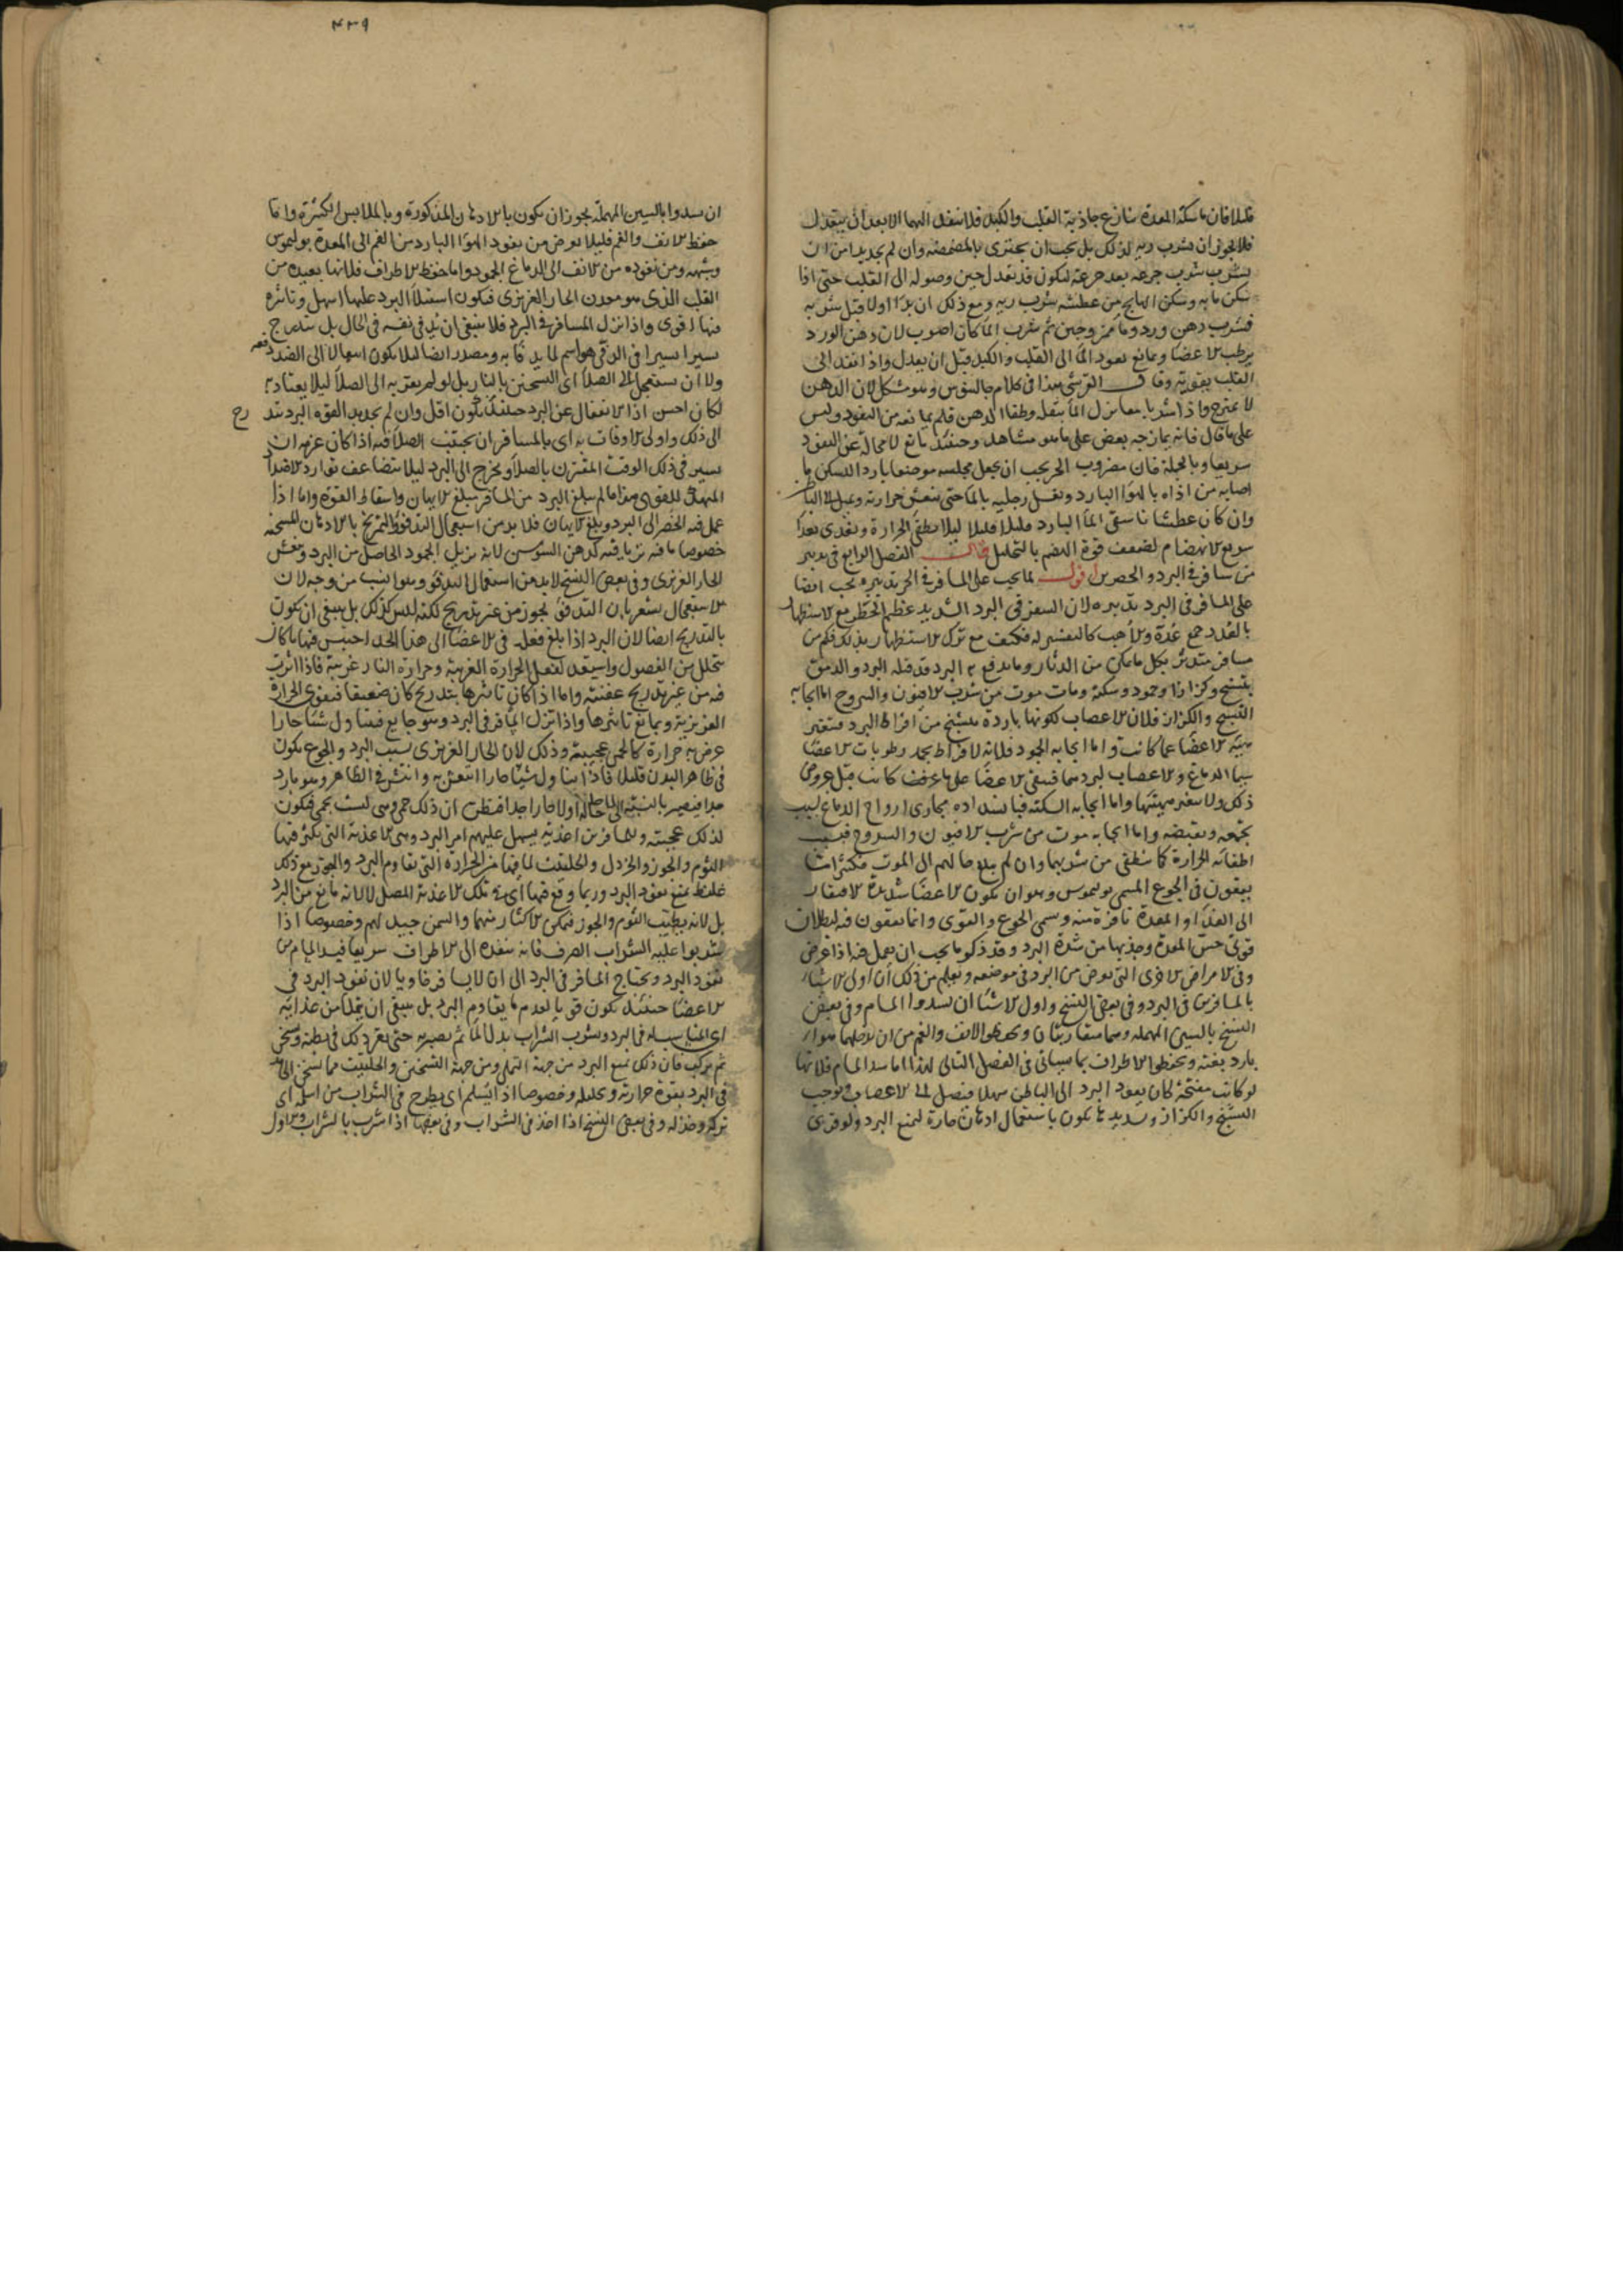 قليلا فان ماسكة المعدة تنازع جاذبة القلب والكبد فلا ينفذ اليهما الا بعد ان يعتدل
فلا يجوز ان يشرب ريه لذلك بل يجب ان يجتزى بالمضمضة وان لم يجد بدا من ان
يشرب شرب جرعة بعد جرعة ليكون قد يعدل حين وصوله الى القلب حتى اذا
سكن ما به وسكن الهايج من عطشه شرب ريه ومع ذلك ان بدا اولا قبل شربه
فشرب دهن ورد وماء ممزوجين ثم شرب الماء كان اصوب لان دهن الورد
يرطب الاعضا ويمانع نفوذ الماء الى القلب والكبد قبل ان يعدل واذا نفذ الى
القلب يقويه وقال القرشى هذا فى كلام جالينوس وهو مشكل لان الدهن
لا يمتزج واذا شربا معا نزل الماء بثقله وطفا الدهن فلم يمانعه من النفوذ وليس
على ما قال فانه يمازجه بعض على ما هو مشاهد وحينئذ يمانع لا محالة عن النفوذ
سريعا وبالجملة فان مضروب الحر يجب ان يجعل مجلسه موضعا باردا ليسكن ما
اصابه من اذاه بالهواء البارد ويغسل رجليه بالماء حتى ينعش حرارته ويميل الى الباطن
وان كان عطشانا سقى الماء البارد قليلا قليلا ليلا يطفى الحرارة ويغذى بغذاء
سريع الانهضام لضعف قوة الهضم بالتحليل قال الفصل الرابع فى تدبير
من سافر فى البرد والحصر اقول كما يجب على المسافر فى الحر تدبيره يجب ايضا
على المسافر فى البرد تدبيره لان السفر فى البرد الشديد عظيم الخطر مع الاستظهار
بالعدد جمع عدة والاهب كالتفسير له فكيف مع ترك الاستظهار بذلك فكم من
مسافر متدثر بكل ما يمكن من الدثار وما يدفع به البرد قد قتله البرد والدمق
بتشنج وكزاز وجمود وسكتة ومات موت من شرب الافيون واليبروح اما ايجابه
التشنج والكزاز فلان الاعصاب لكونها باردة يتشنج من افراط البرد فتغير
هيئة الاعضا عما كانت واما ايجابه الجمود فلانه لافراطه يجمد رطوبات الاعضا
سيما الدماغ والاعصاب لبردهما فيبقى الاعضا على ما عرفت كانت قبل عروض
ذلك ولا يتغير هيئتها واما ايجابه السكتة فبانسداده مجارى ارواح الدماغ بسبب
تجمعه وتقبضه واما ايجابه موت من شرب الافيون واليبروح فبسبب
اطفائه الحرارة كما تنطفى من شربهما وان لم يبلغ حالهم الى الموت فكثيرا ما
يقعون فى الجوع المسمى بوليموس وهو ان يكون الاعضا شديدة الافتقار
الى الغذاء والمعدة نافرة منه ويسمى الجوع والقوى وانما يقعون فيه لبطلان
قوتى حس المعدة وجذبها من شدة البرد وقد ذكر ما يجب ان يعمل فيه اذا عرض
وفى الامراض الاخرى التى تعرض من البرد فى موضعه ويعلم من ذلك ان اول الاشيا
بالمسافرين فى البرد وفى بعض النسخ واول الاشياء ان يسدوا المسام وفى بعض
النسخ بالسين المهملة وهما متقاربتان ويحفظوا الانف والفم من ان يدخلهما هواء
بارد بغتة ويحفظوا الاطراف بما سياتى فى الفصل التالى لهذا اما سد المسام فلانها
لو كانت منفتحة كان نفوذ البرد الى الباطن سهلا فيصل الى الاعصاب ويوجب
التشنج والكزاز وسديدها يكون باستعمال ادهان حارة ليمنع البرد ولو قرى
٤٣٩
ان يسدوا بالسين المهملة يجوز ان يكون بالادهان المذكورة وبالملابس الكثيرة واما
حفظ الانف والفم فليلا يعرض من نفوذ الهواء البارد من الفم الى المعدة بوليموس
وشبهه ومن نفوذه من الانف الى الدماغ الجمود واما حفظ الاطراف فلانها بعيدة من
القلب الذى هو معدن الحار الغريزى فيكون استيلاء البرد عليها اسهل وتاثره
فيها اقوى واذا نزل المسافر فى البرد فلا ينبغى ان يدفى نفسه فى الحال بل يتدرج
يسيرا يسيرا فى الدفى هو اسم لما يدفا به ومصدر ايضا ليلا يكون انتقالا الى الضد دفعة
ولا ان يستعجل الى الصلاء اى التسخن بالنار بل لو لم يقربه الى الصلاء ليلا يعتاد به
لكان احسن اذ الانفعال عن البرد حينئذ يكون اقل وان لم يجد بدا لقوة البرد بتدريج
الى ذلك واولى الاوقات به اى بالمسافر ان يجتنب الصلاء فيه اذا كان عزمه ان
يسير فى ذلك الوقت المقترن بالصلاء ويخرج الى البرد ليلا يتضاعف توارد الاضداد
المنهك للقوى هذا ما لم يبلغ البرد من المسافر مبلغ الايهان واسقاط القوة واما اذا
عمل فيه الخصر الى البرد وبلغ الايهان فلا بد من استعمال التدفؤ والتمريخ بالادهان المسخنة
خصوصا ما فيه ترياقية كدهن السوسن لانه يزيل الجمود الحاصل من البرد وينعش
الحار الغريزى وفى بعض النسخ لابد من استعمال التدفؤ وهو انسب من وجه لان
الاستعمال يشعر بان التدفؤ يجوز من غير تدريج لكنه ليس كذلك بل ينبغى ان يكون
بالتدريج ايضا لان البرد اذا بلغ فعله فى الاعضا الى هذا الحد احتبس فيها ما كان
يتحلل من الفضول واستعد لفعل الحرارة الغريبة وحرارة النار غريبة فاذا اثرت
فيه من غير تدريج عفنته واما اذا كان تاثيرها بتدريج كان ضعيفا فيقوى الحرارة
الغريزية ويمانع تاثيرها واذا نزل المسافر فى البرد وهو جايع فتناول شيئا حارا
عرض به حرارة كالحمى عجيبة وذلك لان الحار الغريزى بسبب البرد والجوع يكون
فى ظاهر البدن قليلا فاذا تناول شيئا حارا انتعش به وانتشر فى الظاهر وهو بارد
جدا فيصير بالنسبة الى حاله اولا حارا جدا فيظن ان ذلك حمى وهى ليست بحمى فيكون
لذلك عجيبة وللمسافرين اغذية يسهل عليهم امر البرد وهى الاغذية التى يكثر فيها
الثوم والجوز والخردل والحلتيت لما فيها من الحرارة التى تقاوم البرد والجوز مع ذلك
غليظ يمنع نفوذ البرد وربما وقع فيها اى فى تلك الاغذية المصل لا لانه مانع من البرد
بل لانه يطيب الثوم والجوز فيمكن الاكثار منهما والسمن جيد لهم وخصوصا اذا
شربوا عليه الشراب الصرف فانه ينفذه الى الاطراف سريعا فيسد المسام من
نفوذ البرد ويحتاج المسافر فى البرد الى ان لا يسافر خاويا لان نفوذ البرد فى
الاعضا حينئذ يكون قويا لعدم ما يقاوم البرد بل ينبغى ان يمتلئ من غذائه
اى المناسب له فى البرد ويشرب الشراب بدل الماء ثم يصبر حتى يقر ذلك فى بطنه ويسخن
ثم يركب فان ذلك يمنع البرد من جهة التملى ومن جهة التسخين والحلتيت مما يسخن الجامد
فى البرد بقوة حرارته وتحليله وخصوصا اذا سلم اى يطرح فى الشراب من اسلمه اى
تركه وخذله وفى بعض النسخ اذا اخذ فى الشراب وفى بعضها اذا شرب بالشراب والاول